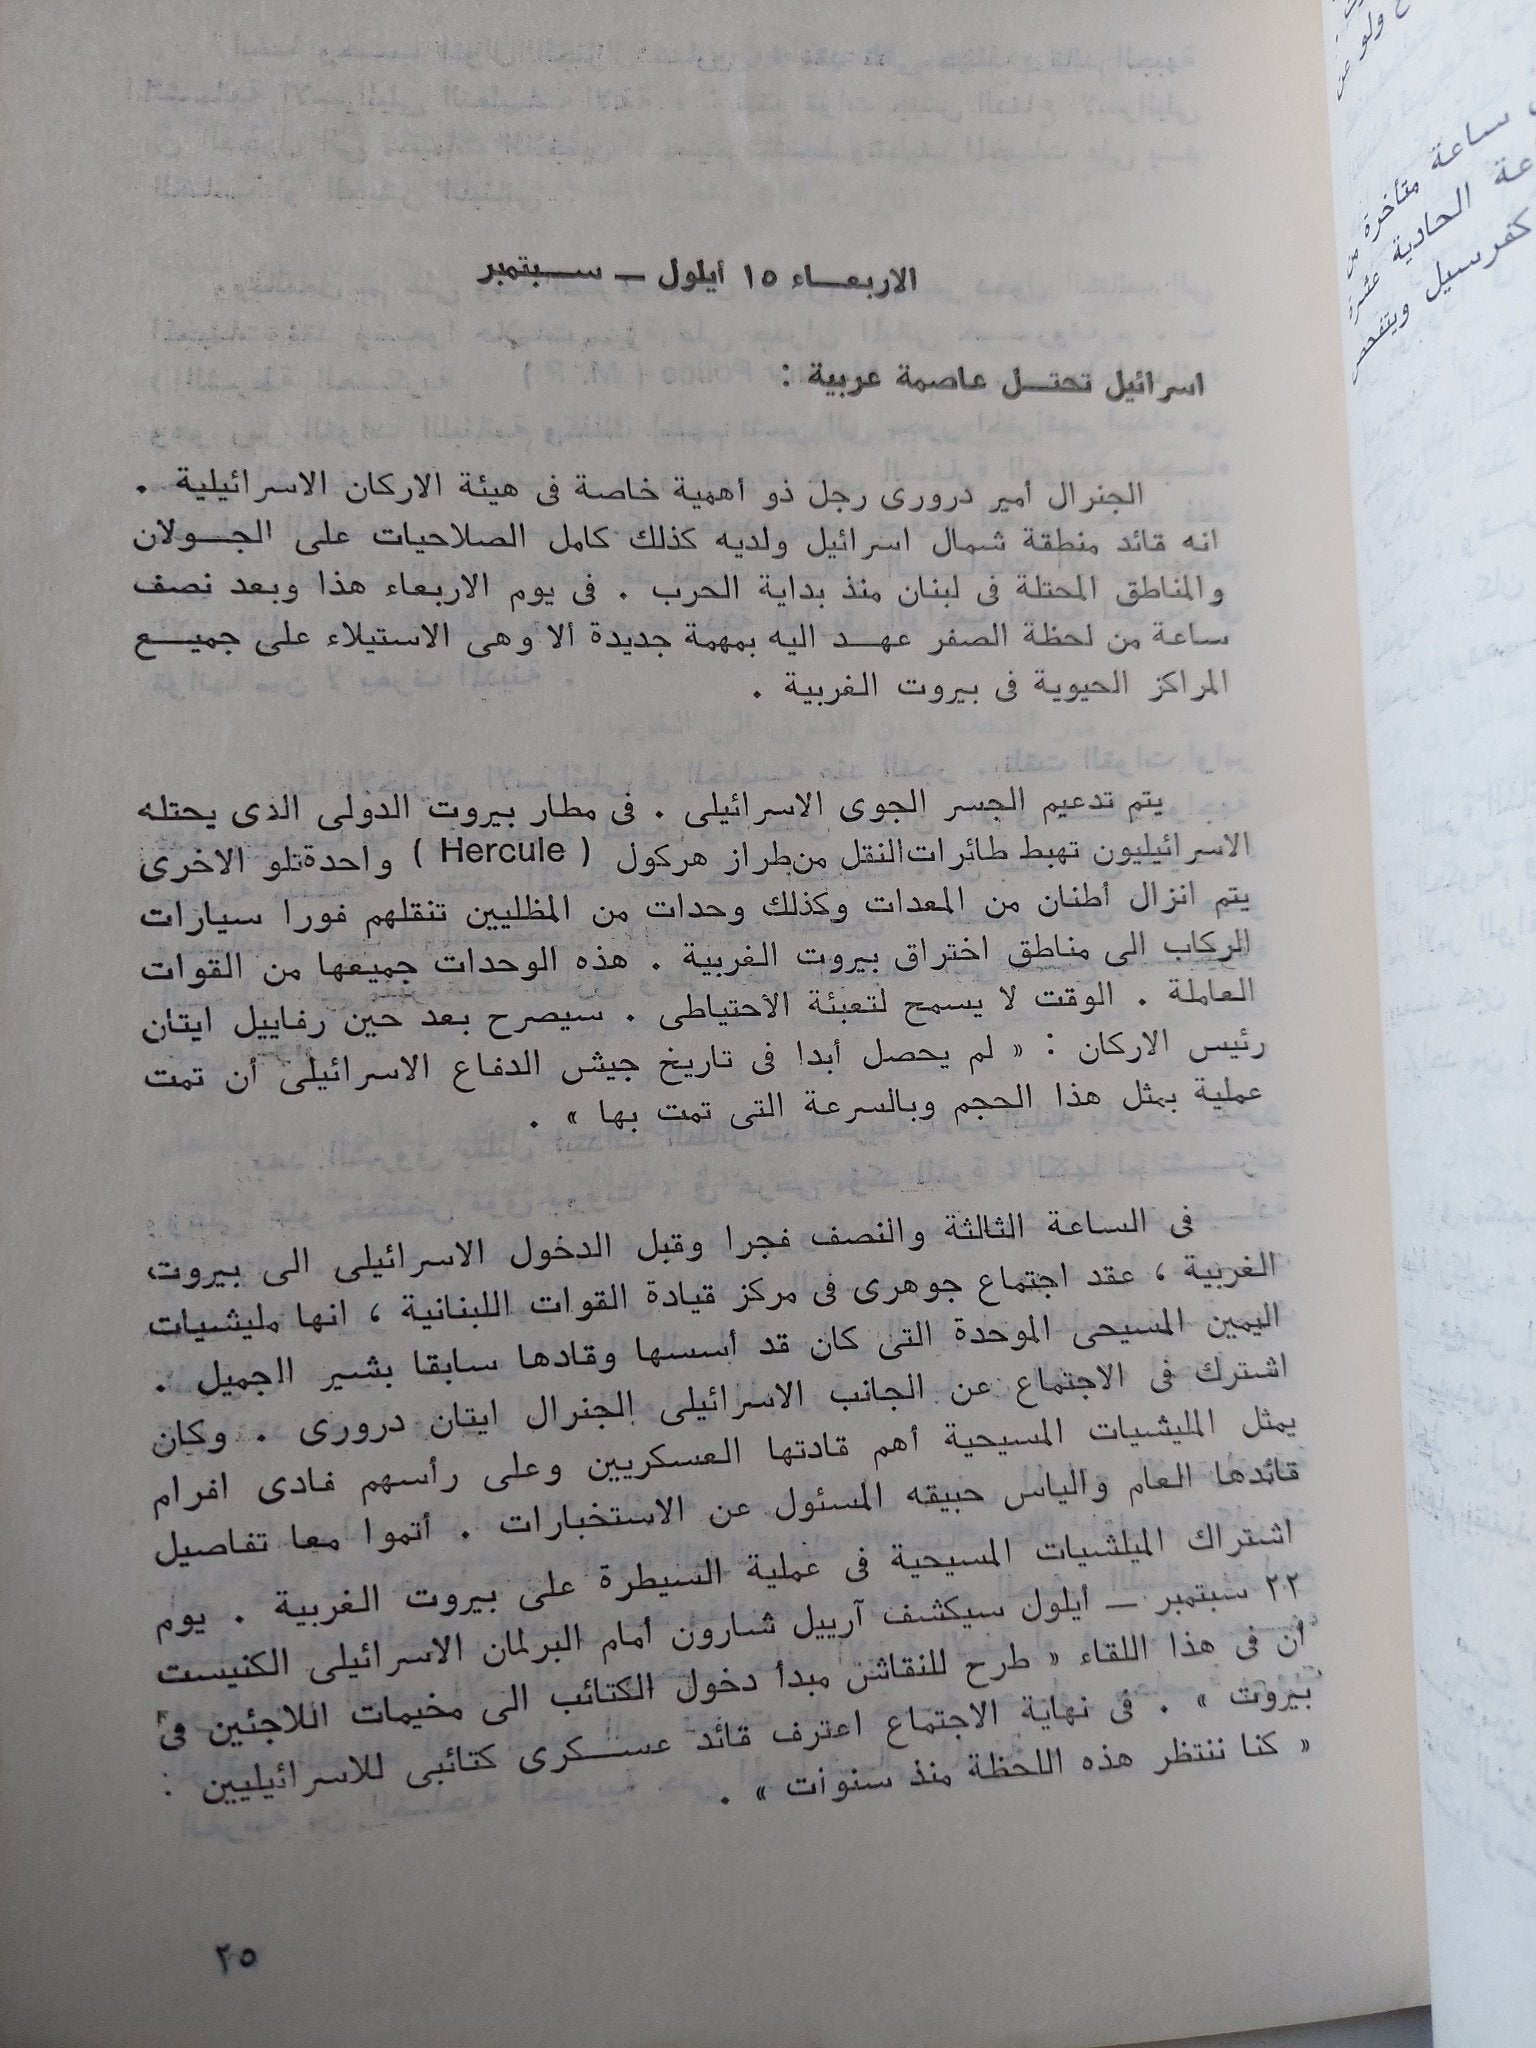 الاربعـــاء ١٥ أيلول ــ ســـبتمبر
اسرائيل تحتـــل عاصمة عربية :
الجنرال أمير درورى رجل ذو أهمية خاصة فى هيئة الاركان الاسرائيلية .
انه قائد منطقة شمال اسرائيل ولديه كذلك كامل الصلاحيات على الجـــولان
والمناطق المحتلة فى لبنان منذ بداية الحرب . فى يوم الاربعاء هذا وبعد نصف
ساعة من لحظة الصفر عهـــد اليه بمهمة جديدة ألا وهى الاستيلاء على جميـــع
المراكز الحيوية فى بيروت الغربية .
يتم تدعيم الجسر الجوى الاسرائيلى . فى مطار بيروت الدولى الذى يحتله
الاسرائيليون تهبط طائرات النقل من طراز هركول ( Hercule ) واحدة تلو الاخرى
يتم انزال أطنان من المعدات وكذلك وحدات من المظليين تنقلهم فورا سيارات
الركاب الى مناطق اختراق بيروت الغربية . هذه الوحدات جميعها من القوات
العاملة . الوقت لا يسمح لتعبئة الأحتياطى . سيصرح بعد حين رفاييل ايتان
رئيس الاركان : « لم يحصل أبدا فى تاريخ جيش الدفاع الاسرائيلى أن تمت
عملية بمثل هذا الحجم وبالسرعة التى تمت بها » .
فى الساعة الثالثة والنصف فجرا وقبل الدخول الاسرائيلى الى بيروت
الغربية ، عقد اجتماع جوهرى فى مركز قيادة القوات اللبنانية ، انها مليشيات
اليمين المسيحى الموحدة التى كان قد أسسها وقادها سابقا بشير الجميل .
اشترك فى الاجتماع عن الجانب الاسرائيلى الجنرال ايتان درورى . وكان
يمثل المليشيات المسيحية أهم قادتها العسكريين وعلى رأسهم فادى افرام
قائدها العام والياس حبيقه المسئول عن الاستخبارات . أتموا معا تفاصيل
اشتراك الميلشيات المسيحية فى عملية السيطرة على بيروت الغربية . يوم
٢٢ سبتمبر ــ أيلول سيكشف آرييل شارون أمام البرلمان الاسرائيلى الكنيست
أن فى هذا اللقاء « طرح للنقاش مبدأ دخول الكتائب الى مخيمات اللاجئين فى
بيروت » . فى نهاية الاجتماع اعترف قائد عســـكرى كتائبى للاسرائيليين :
« كنا ننتظر هذه اللحظة منذ سنوات » .
٢٥
ولو عن
ساعة متأخرة من
عة الحادية عشرة
كفرسيل ويتفحص